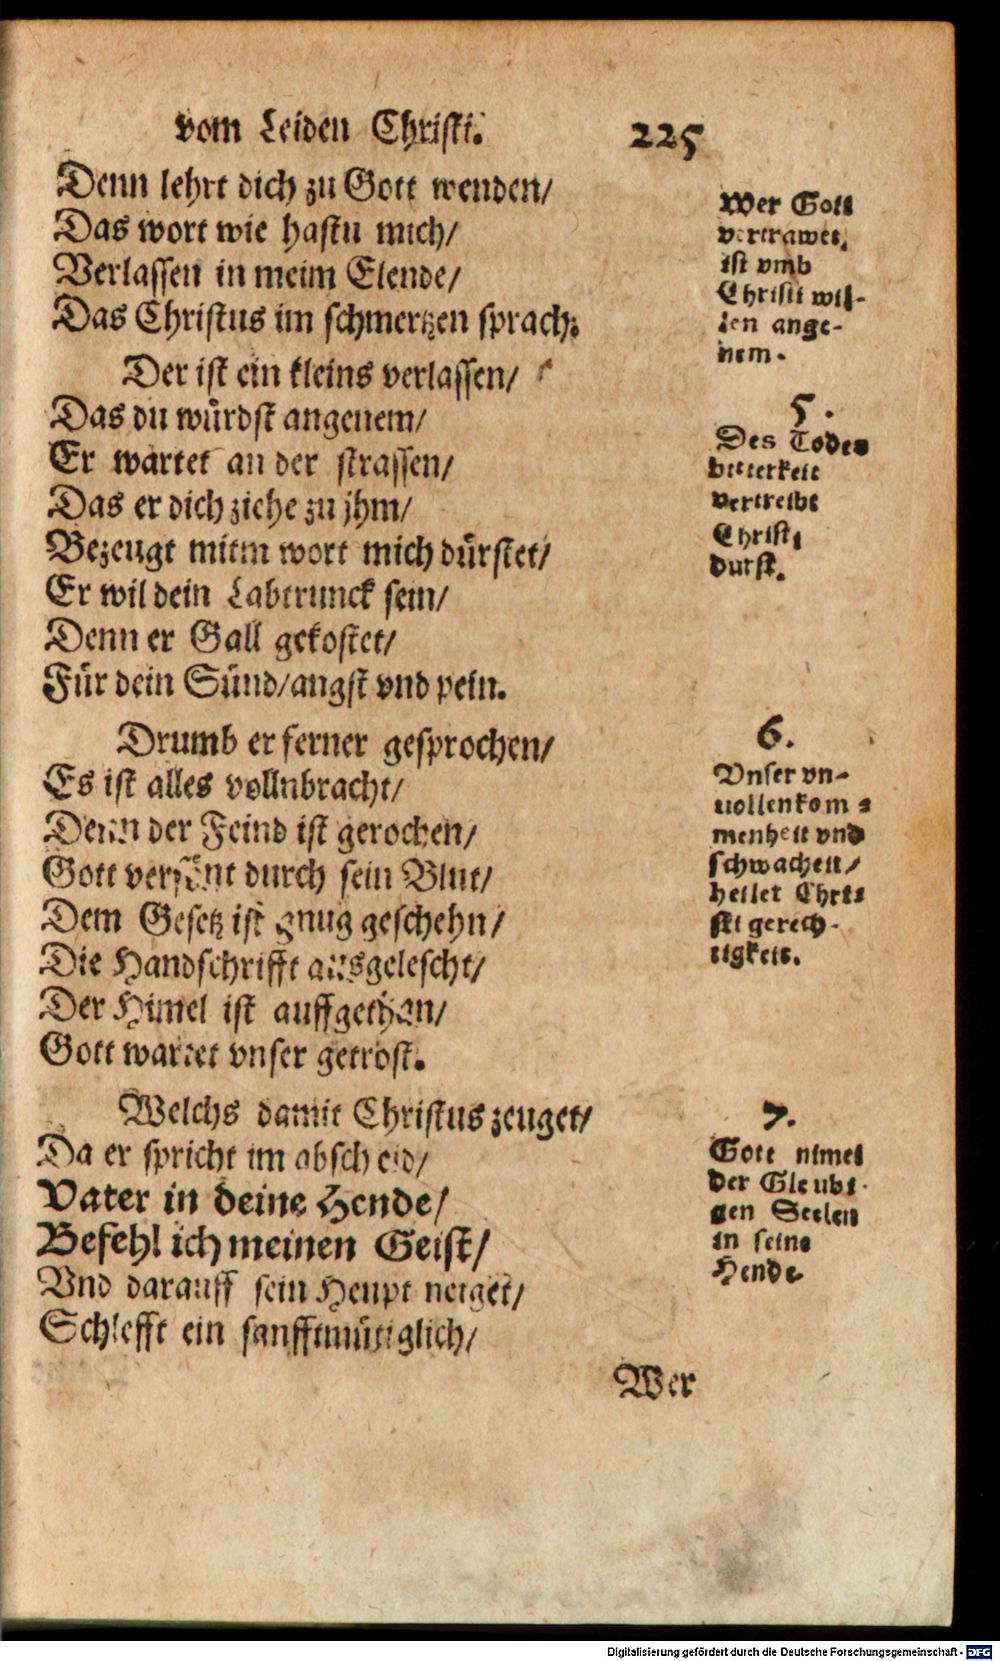 vom Leiden Christi. 225
Denn lehrt dich zu Gott wenden/
Das wort wie hastu mich/
Verlassen in meim Elende/
Das Christus im schmertzen sprach:
Wer Gott
vertrawet,
ist vmb
Christi wil-
len ange-
nem.
Der ist ein kleins verlassen/
Das du würdst angenem/
Er wartet an der strassen/
Das er dich ziehe zu jhm/
Bezeugt mitm wort mich dürstet/
Er wil dein Labtrunck sein/
Denn er Gall gekostet/
Für dein Sünd/angst vnd pein.
5.
Des Todes
bitterkeit
vertreibt
Christi
durst.
Drumb er ferner gesprochen/
Es ist alles vollnbracht/
Denn der Feind ist gerochen/
Gott versönt durch sein Blut/
Dem Gesetz ist gnug geschehn/
Die Handschrifft ausgelescht/
Der Himel ist auffgethan/
Gott wartet vnser getrost.
6.
Vnser vn-
uollenkom-
menheit vnd
schwacheit/
heilet Chri-
sti gerech-
tigkeit.
Welchs damit Christus zeuget/
Da er spricht im abscheid/
Vater in deine Hende/
Befehl ich meinen Geist/
Vnd darauff sein Heupt neiget/
Schlefft ein sanfftmütiglich/
7.
Gott nimet
der Gleubi-
gen Seelen
in seine
Hende
Wer
Digitalisierung gefördert durch die Deutsche Forschungsgemeinschaft - DFG